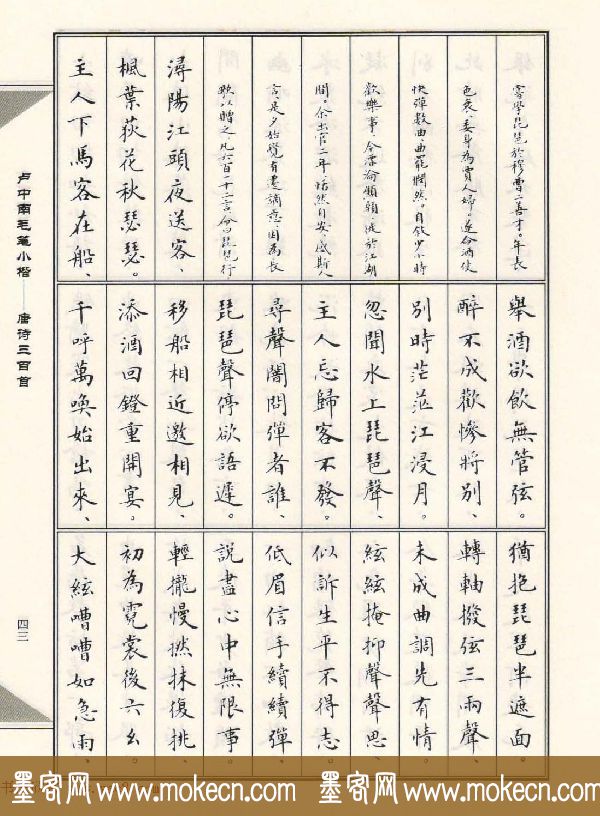 嘗學琵琶於穆曹二善才。年長
色衰、委身為賈人婦。遂命酒使
快彈數曲、曲罷憫然。自敘少小時
歡樂事、今漂淪顦顇、徙於江湖
間。余出官二年、恬然自安、感斯人
言、是夕始覺有遷謫意。因為長
歌以贈之、凡六百一十二言、命曰琵琶行
潯陽江頭夜送客、
楓葉荻花秋瑟瑟。
主人下馬客在船、
舉酒欲飲無管弦。
醉不成歡慘將別、
別時茫茫江浸月。
忽聞水上琵琶聲、
主人忘歸客不發。
尋聲闇問彈者誰、
琵琶聲停欲語遲。
移船相近邀相見、
添酒回鐙重開宴。
千呼萬喚始出來、
猶抱琵琶半遮面。
轉軸撥弦三兩聲、
未成曲調先有情。
絃絃掩抑聲聲思、
似訴生平不得志。
低眉信手續續彈、
說盡心中無限事。
輕攏慢撚抹復挑、
初為霓裳後六幺。
大絃嘈嘈如急雨、
卢中南毛笔小楷——唐诗三百首
四三
墨客网 www.mokecn.com 墨客网 www.mokecn.com